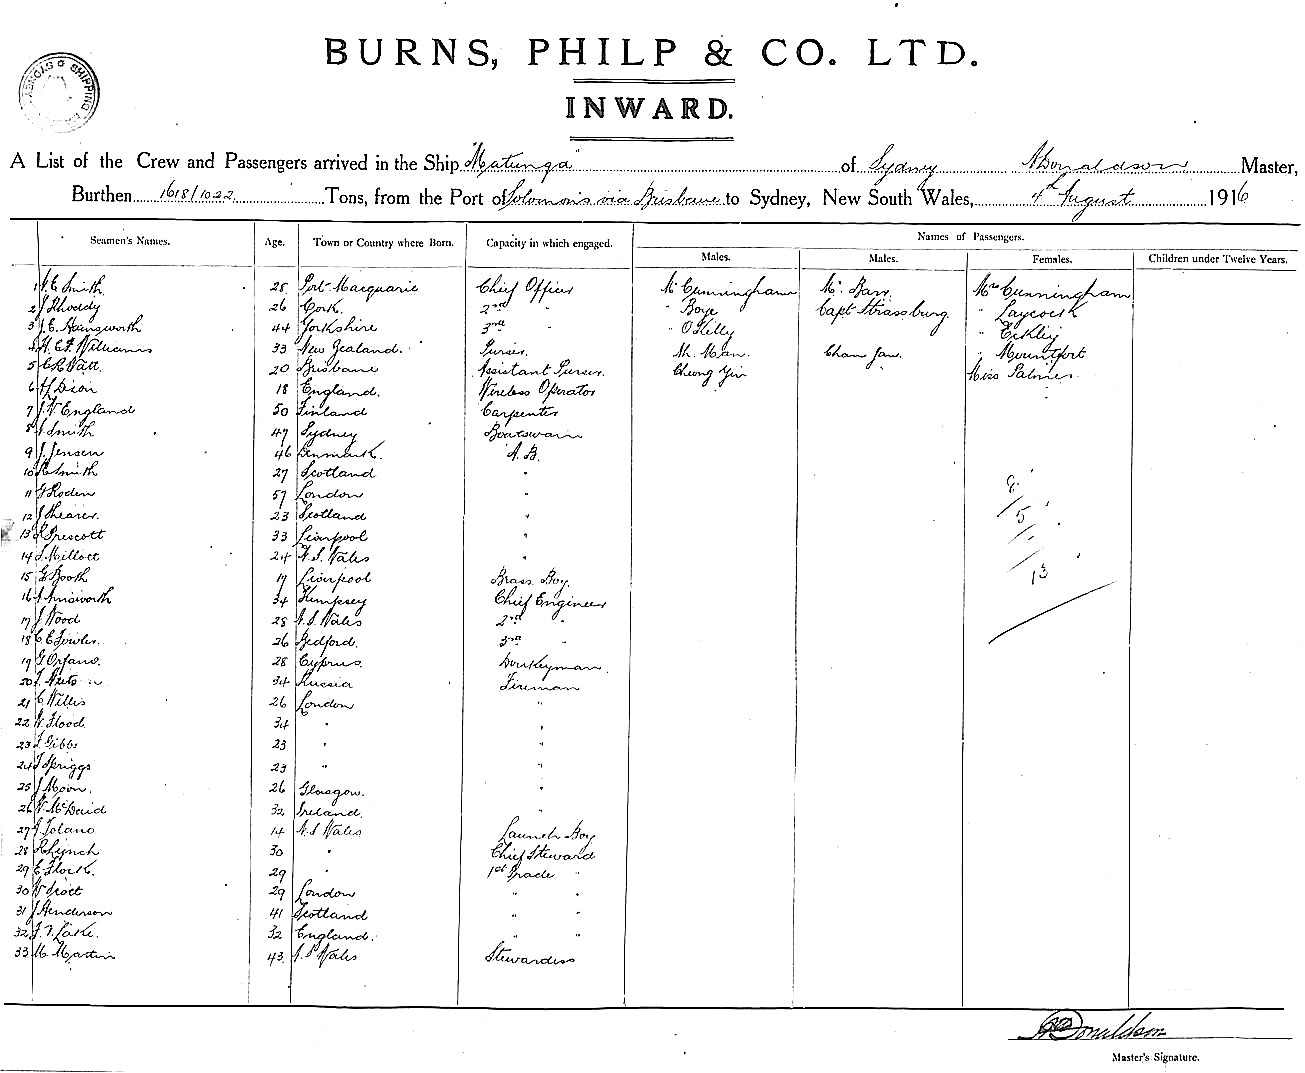 BURNS, PHILP & CO. LTD.
INWARD.
A List of the Crew and Passengers arrived in the Ship "Matunga" of Sydney A Donaldson Master,
Burthen 1618/1022 Tons, from the Port of Solomons via Brisbane to Sydney, New South Wales, 4th August 1916
Seamen's Names. Age. Town or Country where Born. Capacity in which engaged. Names of Passengers.
Males. Males. Females. Children under Twelve Years.
1 Smith 28 Port Macquarie Chief Officer Mr Cunningham Mr. Barr Mrs Cunningham
2 J Rhoddy 26 Cork. 2nd " " Boye Capt Strassburg " Laycock
3 J. E. Hainsworth 44 Yorkshire 3rd " " O'Kelly "
4 H. E. F. Williams 33 New Zealand. Purser. Ah. Man. Cham Jan. " Mountfort
5 C R Watt. 20 Brisbane Assistant Purser. Cheong Yin Miss Palmer
6 H Dixon 18 England. Wireless Operator
7 J. W England 50 Finland Carpenter
8 Smith 47 Sydney Boatswain
9 J. Jensen 46 Denmark. A. B.
10 Smith 27 Scotland "
11 Roden 57 London "
12 J Shearer. 23 Scotland "
13 Prescott 33 Liverpool "
14 Millott 24 N. S. Wales "
15 G Booth 17 Liverpool Brass Boy.
16 Ainsworth 34 Kempsey Chief Engineer
17 J Wood 28 N. S. Wales 2nd "
18 C E Fowler. 26 Bedford. 3rd "
19 G Orfano. 28 Cyprus. Donkeyman.
20 34 Russia Fireman
21 C Willis 26 London "
22 W. Flood. 34 " "
23 Gibbs 23 " "
24 Spriggs 23 " "
25 J Moon. 26 Glasgow. "
26 W. McDaid 32 Ireland. "
27 Tolano 14 N. S Wales Launch Boy
28 R Lynch 30 " Chief Steward
29 E. Flock. 29 " 1st Grade "
30 29 London " "
31 J Henderson 41 Scotland " "
32 F. T. Lake. 32 England. " "
33 M. Martin 43. N. S Wales Stewardess
8
5
13
A Donaldson
Master's Signature.